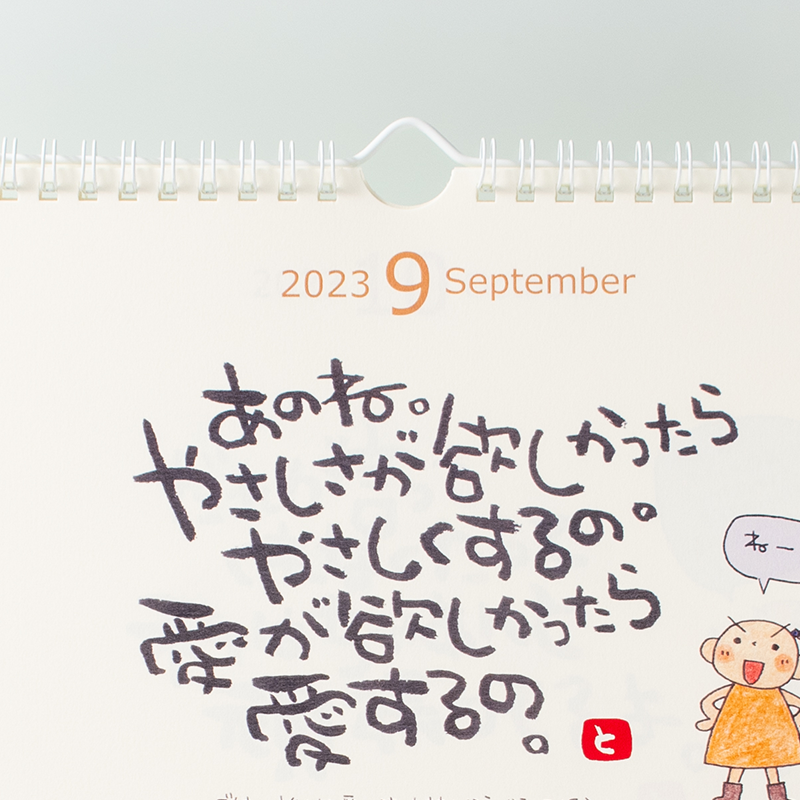 2023 9 September
あのね。
やさしさが欲しかったら
やさしくするの。
愛が欲しかったら
愛するの。
と
ねー